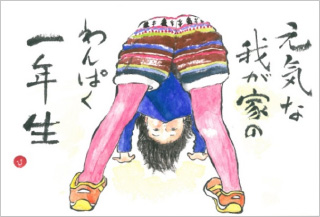 元気な
我が家の
わんぱく
一年生